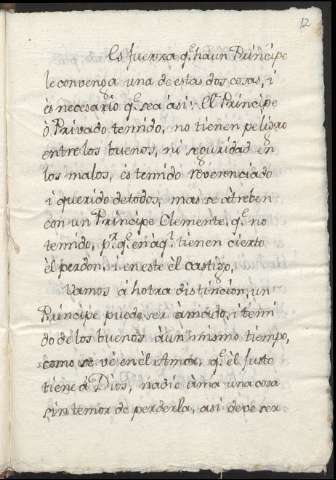 12
Es fuerza q.e ha un Principe
le convenga una de estas dos cosas, i
es necesario q.e sea asi: El Principe
ò Privado temido, no tienen peligro
entre los buenos, ni seguridad en
los malos, es temido reverenciado
i querido de todos, mas se atreben
con un Principe Clemente, q.e no
temido, p.r q.e en aq.l tienen cierto
el perdon, i en este el castigo,
Vamos à hotra distincion, un
Principe puede ser àmado, i temi
do de los buenos à un mismo tiempo,
como se vé en él Amor, q.e él Justo
tiene à Dios, nadie àma una cosa
sin temor de perderla, asi deve ser